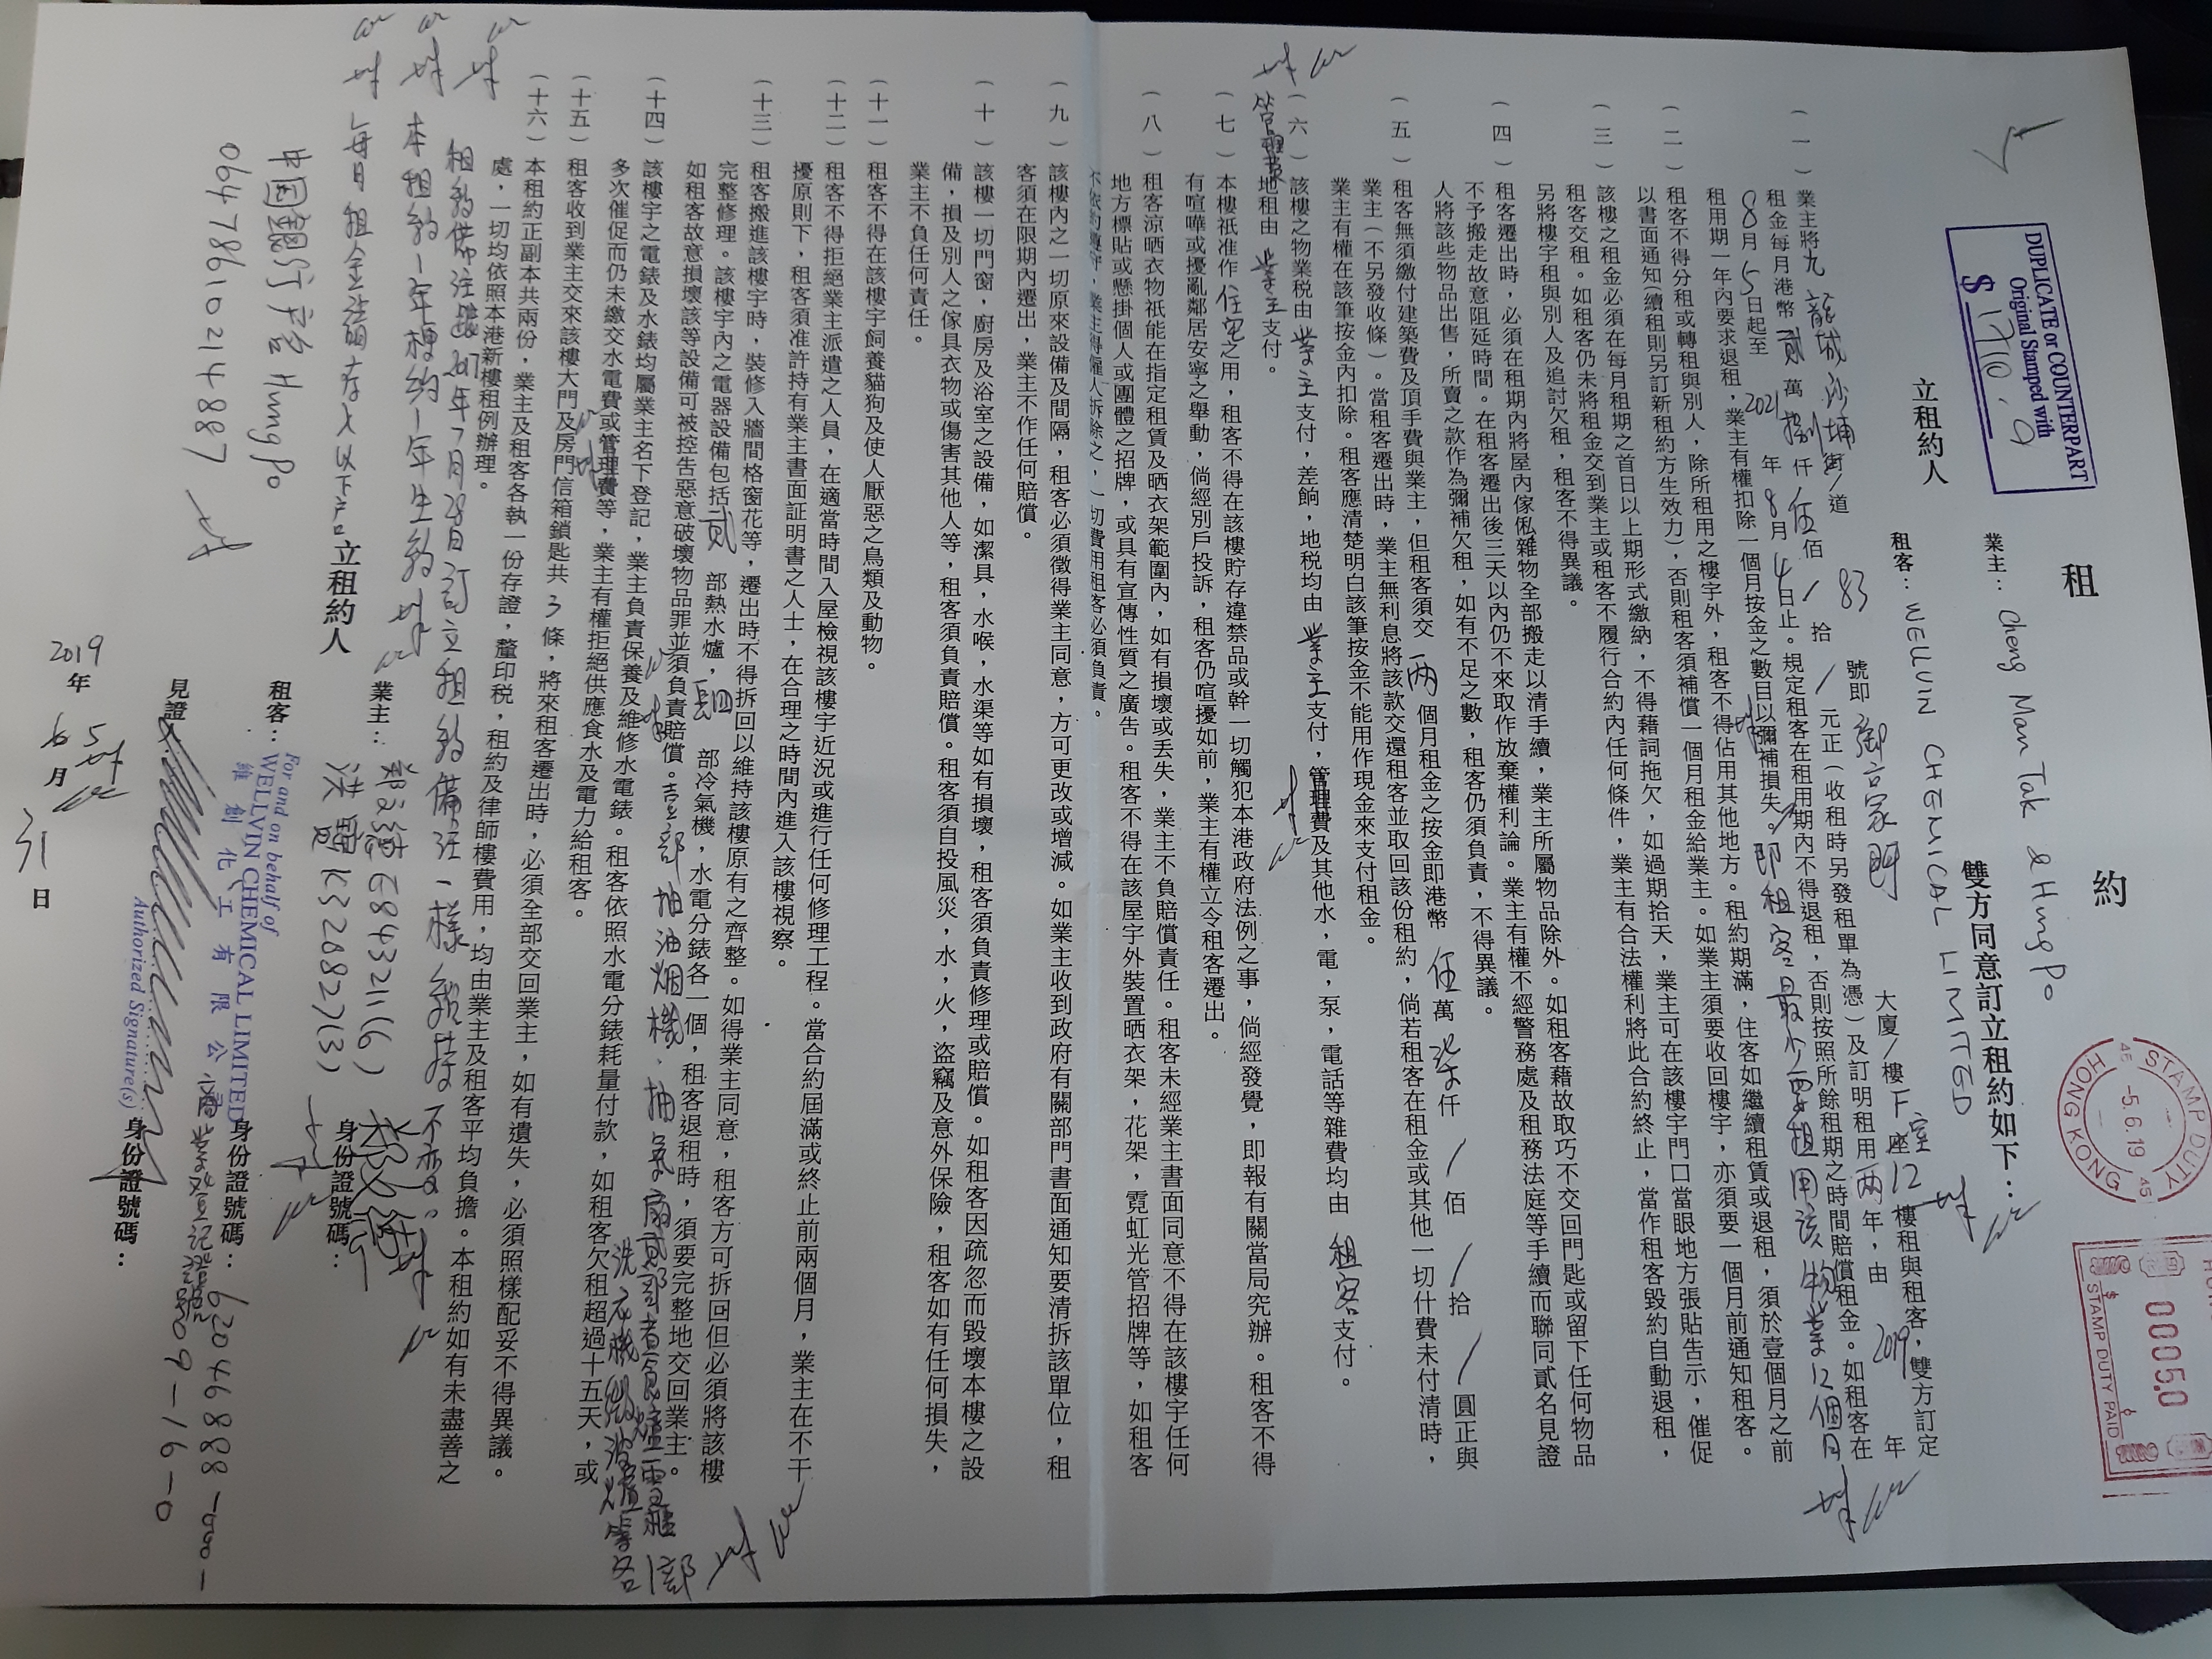 租 約
DUPLICATE or COUNTERPART
Original Stamped with
$ 1710.0
STAMP DUTY
-5.6.19
HONG KONG
00050
STAMP DUTY PAID
立租約人
業主：Cheng Man Tak & Hung Po
租客：WELLVIN CHEMICAL LIMITED
雙方同意訂立租約如下：
（一）業主將九龍城沙埔街/道 83 號即御豪門 大廈/樓 F 室座 12 樓租與租客，雙方訂定
租金每月港幣貳萬捌仟伍佰/拾/元正（收租時另發租單為憑）及訂明租用兩年，由 2019 年
8月5日起至 2021 年8月4日止。規定租客在租用期內不得退租，否則按照所餘租期之時間賠償租金。如租客在
租用期一年內要求退租，業主有權扣除一個月按金之數目以彌補損失。即租客最少要租用該物業12個月
（二）租客不得分租或轉租與別人，除所租用之樓宇外，租客不得佔用其他地方。租約期滿，住客如繼續租賃或退租，須於壹個月之前
以書面通知(續租則另訂新租約方生效力)，否則租客須補償一個月租金給業主。如業主須要收回樓宇，亦須要一個月前通知租客。
（三）該樓之租金必須在每月租期之首日以上期形式繳納，不得藉詞拖欠，如過期拾天，業主可在該樓宇門口當眼地方張貼告示，催促
租客交租。如租客仍未將租金交到業主或租客不履行合約內任何條件，業主有合法權利將此合約終止，當作租客毀約自動退租，
另將樓宇租與別人及追討欠租，租客不得異議。
（四）租客遷出時，必須在租期內將屋內傢俬雜物全部搬走以清手續，業主所屬物品除外。如租客藉故取巧不交回門匙或留下任何物品
不予搬走故意阻延時間。在租客遷出後三天以內仍不來取作放棄權利論。業主有權不經警務處及租務法庭等手續而聯同貳名見證
人將該些物品出售，所賣之款作為彌補欠租，如有不足之數，租客仍須負責，不得異議。
（五）租客無須繳付建築費及頂手費與業主，但租客須交兩個月租金之按金即港幣伍萬柒仟/佰/拾/圓正與
業主（不另發收條）。當租客遷出時，業主無利息將該款交還租客並取回該份租約，倘若租客在租金或其他一切什費未付清時，
業主有權在該筆按金內扣除。租客應清楚明白該筆按金不能用作現金來支付租金。
（六）該樓之物業税由業主支付，差餉，地税均由業主支付，管理費及其他水，電，泵，電話等雜費均由租客支付。
管理費地租由業主支付。
（七）本樓祇准作住宅之用，租客不得在該樓貯存違禁品或幹一切觸犯本港政府法例之事，倘經發覺，即報有關當局究辦。租客不得
有喧嘩或擾亂鄰居安寧之舉動，倘經別戶投訴，租客仍喧擾如前，業主有權立令租客遷出。
（八）租客涼晒衣物祇能在指定租賃及晒衣架範圍內，如有損壞或丟失，業主不負賠償責任。租客未經業主書面同意不得在該樓宇任何
地方標貼或懸掛個人或團體之招牌，或具有宣傳性質之廣告。租客不得在該屋宇外裝置晒衣架，花架，霓虹光管招牌等，如租客
不依約遵守，業主得僱人拆除之，一切費用租客必須負責。
（九）該樓內之一切原來設備及間隔，租客必須徵得業主同意，方可更改或增減。如業主收到政府有關部門書面通知要清拆該單位，租
客須在限期內遷出，業主不作任何賠償。
（十）該樓一切門窗，廚房及浴室之設備，如潔具，水喉，水渠等如有損壞，租客須負責修理或賠償。如租客因疏忽而毀壞本樓之設
備，損及別人之傢具衣物或傷害其他人等，租客須負責賠償。租客須自投風災，水，火，盜竊及意外保險，租客如有任何損失，
業主不負任何責任。
（十一）租客不得在該樓宇飼養貓狗及使人厭惡之鳥類及動物。
（十二）租客不得拒絕業主派遣之人員，在適當時間入屋檢視該樓宇近況或進行任何修理工程。當合約屆滿或終止前兩個月，業主在不干
擾原則下，租客須准許持有業主書面証明書之人士，在合理之時間內進入該樓視察。
（十三）租客搬進該樓宇時，裝修入牆間格窗花等，遷出時不得拆回以維持該樓原有之齊整。如得業主同意，租客方可拆回但必須將該樓
完整修理。該樓宇內之電器設備包括貳部熱水爐，四部冷氣機，水電分錶各一個，租客退租時，須要完整地交回業主。
如租客故意損壞該等設備可被控告惡意破壞物品罪並須負責賠償。壹部抽油烟機，抽氣扇貳部煮食爐雪櫃
洗衣機微波爐等各1部
（十四）該樓宇之電錶及水錶均屬業主名下登記，業主負責保養及維修水電錶。租客依照水電分錶耗量付款，如租客欠租超過十五天，或
多次催促而仍未繳交水電費或管理費等，業主有權拒絕供應食水及電力給租客。
（十五）租客收到業主交來該樓大門及房門信箱鎖匙共 3 條，將來租客遷出時，必須全部交回業主，如有遺失，必須照樣配妥不得異議。
（十六）本租約正副本共兩份，業主及租客各執一份存證，釐印税，租約及律師樓費用，均由業主及租客平均負擔。本租約如有未盡善之
處，一切均依照本港新樓租例辦理。
租約備注跟2017年7月28日訂立租約備注一樣維持不变。
本租約1年梗約1年生約
每月租金請存入以下户口
中国銀行户名 Hung Po
064786 10214887
立租約人
業主：鄭文德 E843211(6)
洪寶 K326827(3)
身份證號碼：
租客：
For and on behalf of
WELLVIN CHEMICAL LIMITED
維創化工有限公司
Authorized Signature(s)
身份證號碼：
商業登記證號碼
62046888-000-
09-16-0
見證人：
身份證號碼：
2019年 6月 5
31日